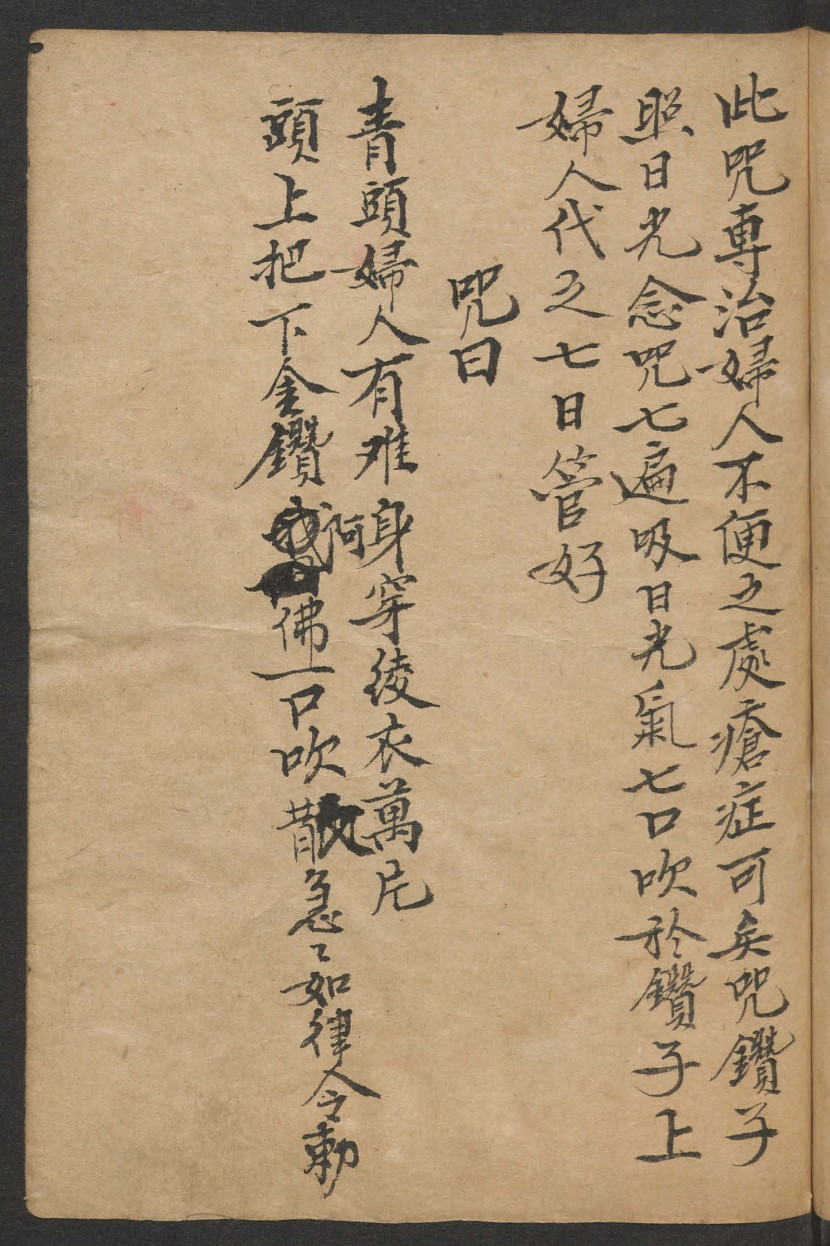 此咒専治婦人不便之處瘡症可矣咒鑽子
照日光念咒七遍吸日光氣七口吹於鑽子上
婦人代之七日管好
咒曰
青頭婦人有难身穿綾衣萬片
頭上把下金鑽阿佛一口吹散急〻如律令勅